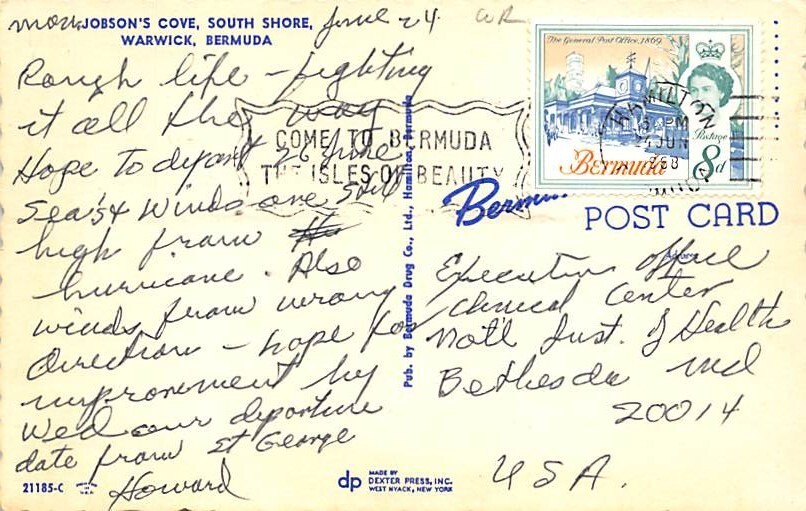 Mon. JOBSON'S COVE, SOUTH SHORE, June 24
WARWICK, BERMUDA
WR
Rough life - fighting
it all the way
Hope to depart 26 June
Sea's & winds are still
high from
hurricane. Also
winds from wrong
direction - hope for
improvement by
Wed our departure
date from St George
Howard
21185-C
COME TO BERMUDA
THE ISLES OF BEAUTY
The General Post Office, 1869
HAMILTON
5 PM
24 JUN
Postage
Bermuda 8d
Bermuda
POST CARD
Address
Executive Office
Clinical Center
Nat'l Inst. of Health
Bethesda Md
20014
USA.
Pub. by Bermuda Drug Co., Ltd., Hamilton, Bermuda
dp MADE BY
DEXTER PRESS, INC.
WEST NYACK, NEW YORK